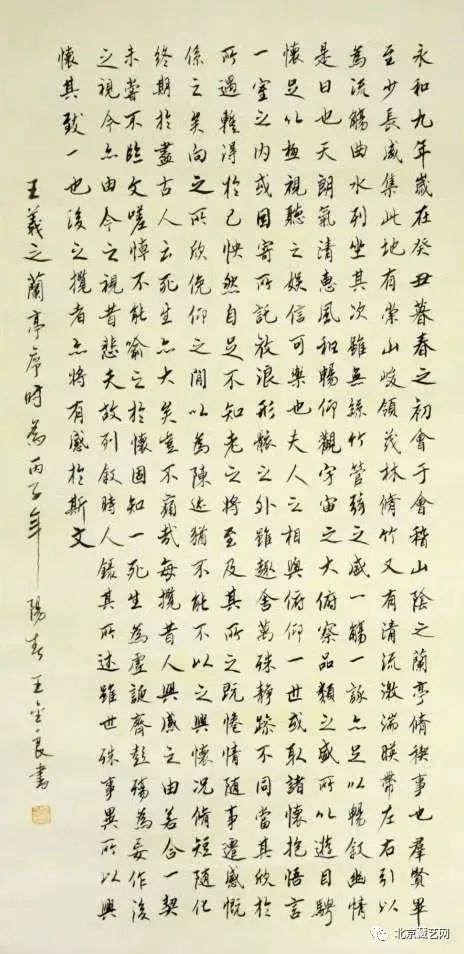 永和九年歲在癸丑暮春之初會于會稽山陰之蘭亭脩禊事也羣賢畢
至少長咸集此地有崇山峻領茂林脩竹又有清流激湍暎帶左右引以
為流觴曲水列坐其次雖無絲竹管弦之盛一觴一詠亦足以暢敘幽情
是日也天朗氣清惠風和暢仰觀宇宙之大俯察品類之盛所以遊目騁
懷足以極視聽之娛信可樂也夫人之相與俯仰一世或取諸懷抱悟言
一室之內或因寄所託放浪形骸之外雖趣舍萬殊靜躁不同當其欣於
所遇輙得於己怏然自足不知老之將至及其所之既惓情隨事遷感慨
係之矣向之所欣俛仰之間以為陳迹猶不能不以之興懷況脩短隨化
終期於盡古人云死生亦大矣豈不痛哉每攬昔人興感之由若合一契
未嘗不臨文嗟悼不能喻之於懷固知一死生為虛誕齊彭殤為妄作後
之視今亦由今之視昔悲夫故列敘時人錄其所述雖世殊事異所以興
懷其致一也後之攬者亦將有感於斯文
王羲之蘭亭序時為丙子年陽春王金良書
北京藏艺网